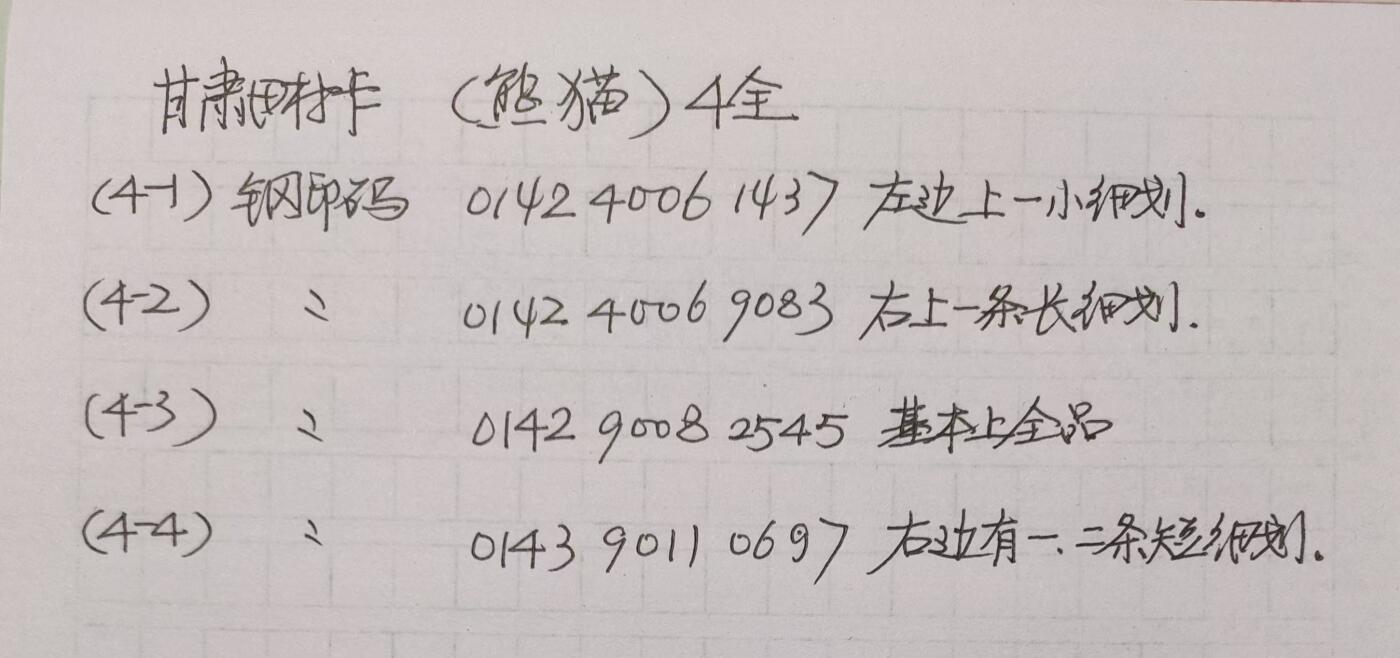 甘肃田村卡 (熊猫) 4全
(4-1) 钢印码 0142 4006 1437 左边上一小细划.
(4-2) 〃 0142 4006 9083 右上一条长细划.
(4-3) 〃 0142 9008 2545 基本上全品
(4-4) 〃 0143 9011 0697 右边有一.二条短细划.